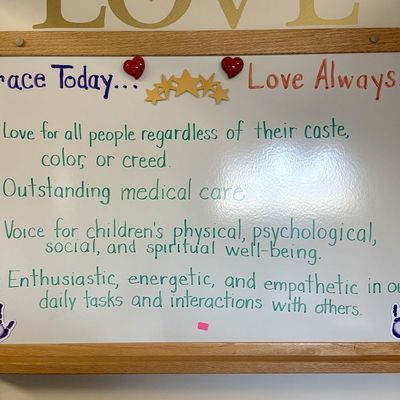 LOVE
race Today... Love Always
Love for all people regardless of their caste,
color, or creed.
Outstanding medical care
Voice for children's physical, psychological,
social, and spiritual well-being.
Enthusiastic, energetic, and empathetic in ou
daily tasks and interactions with others.